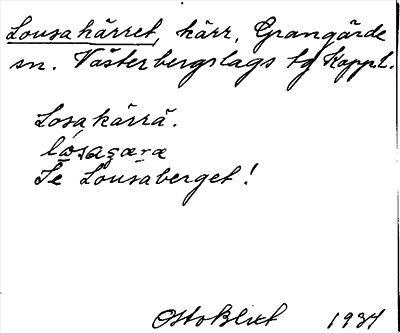 Lousakärret, kärr, Grangärde
sn. Västerbergslags tg Koppb.
Losakärrä.
Se Lousaberget!
Otto Blixt 1934